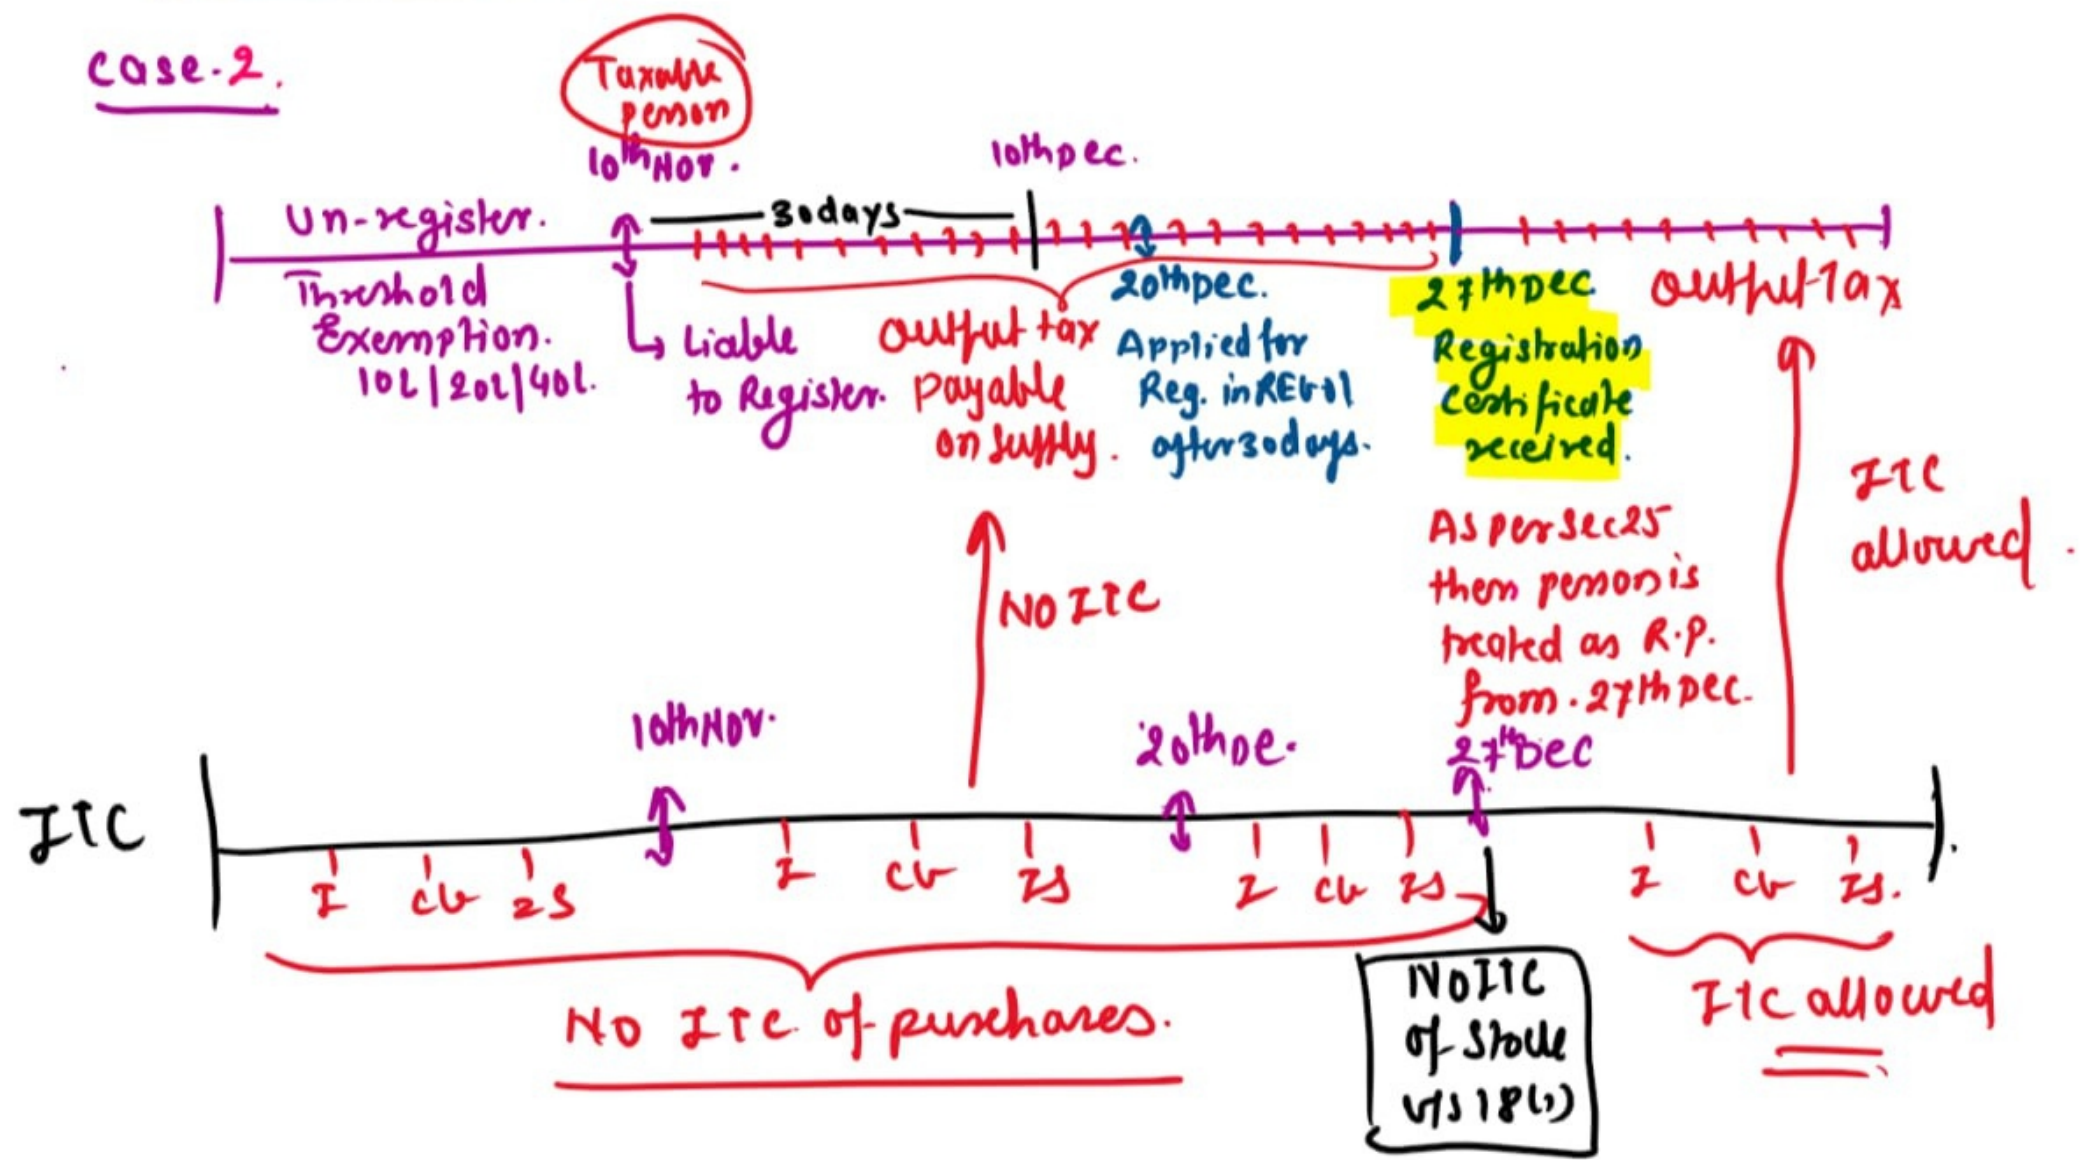 Case-2.
Taxable
person
10th Nov.
10th Dec.
Un-register.
30days
Threshold
Exemption.
10L/20L/40L.
Liable
to Register.
Output tax
payable
on supply.
20th Dec.
Applied for
Reg. in REG01
after 30 days.
27th Dec.
Registration
Certificate
received.
Output Tax
ITC
allowed.
NO ITC
As per Sec 25
then person is
treated as R.P.
from 27th Dec.
ITC
10th Nov.
20th De.
27th Dec
I CG IS
I CG IS
I CG IS
I CG IS.
No ITC of purchases.
No ITC
of Stock
u/s 18(1)
ITC allowed